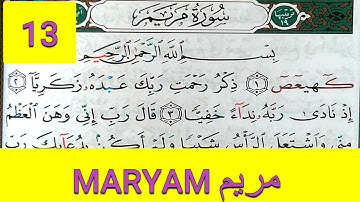 13
سُورَةُ مَرْيَمَ
بِسْمِ اللَّهِ الرَّحْمَٰنِ الرَّحِيمِ
كٓهيعٓصٓ ١ ذِكْرُ رَحْمَتِ رَبِّكَ عَبْدَهُۥ زَكَرِيَّآ ٢
إِذْ نَادَىٰ رَبَّهُۥ نِدَآءً خَفِيًّا ٣ قَالَ رَبِّ إِنِّي وَهَنَ الْعَظْمُ
مِنِّي وَاشْتَعَلَ الرَّأْسُ شَيْبًا وَلَمْ أَكُنۢ بِدُعَآئِكَ رَبِّ
MARYAM مريم